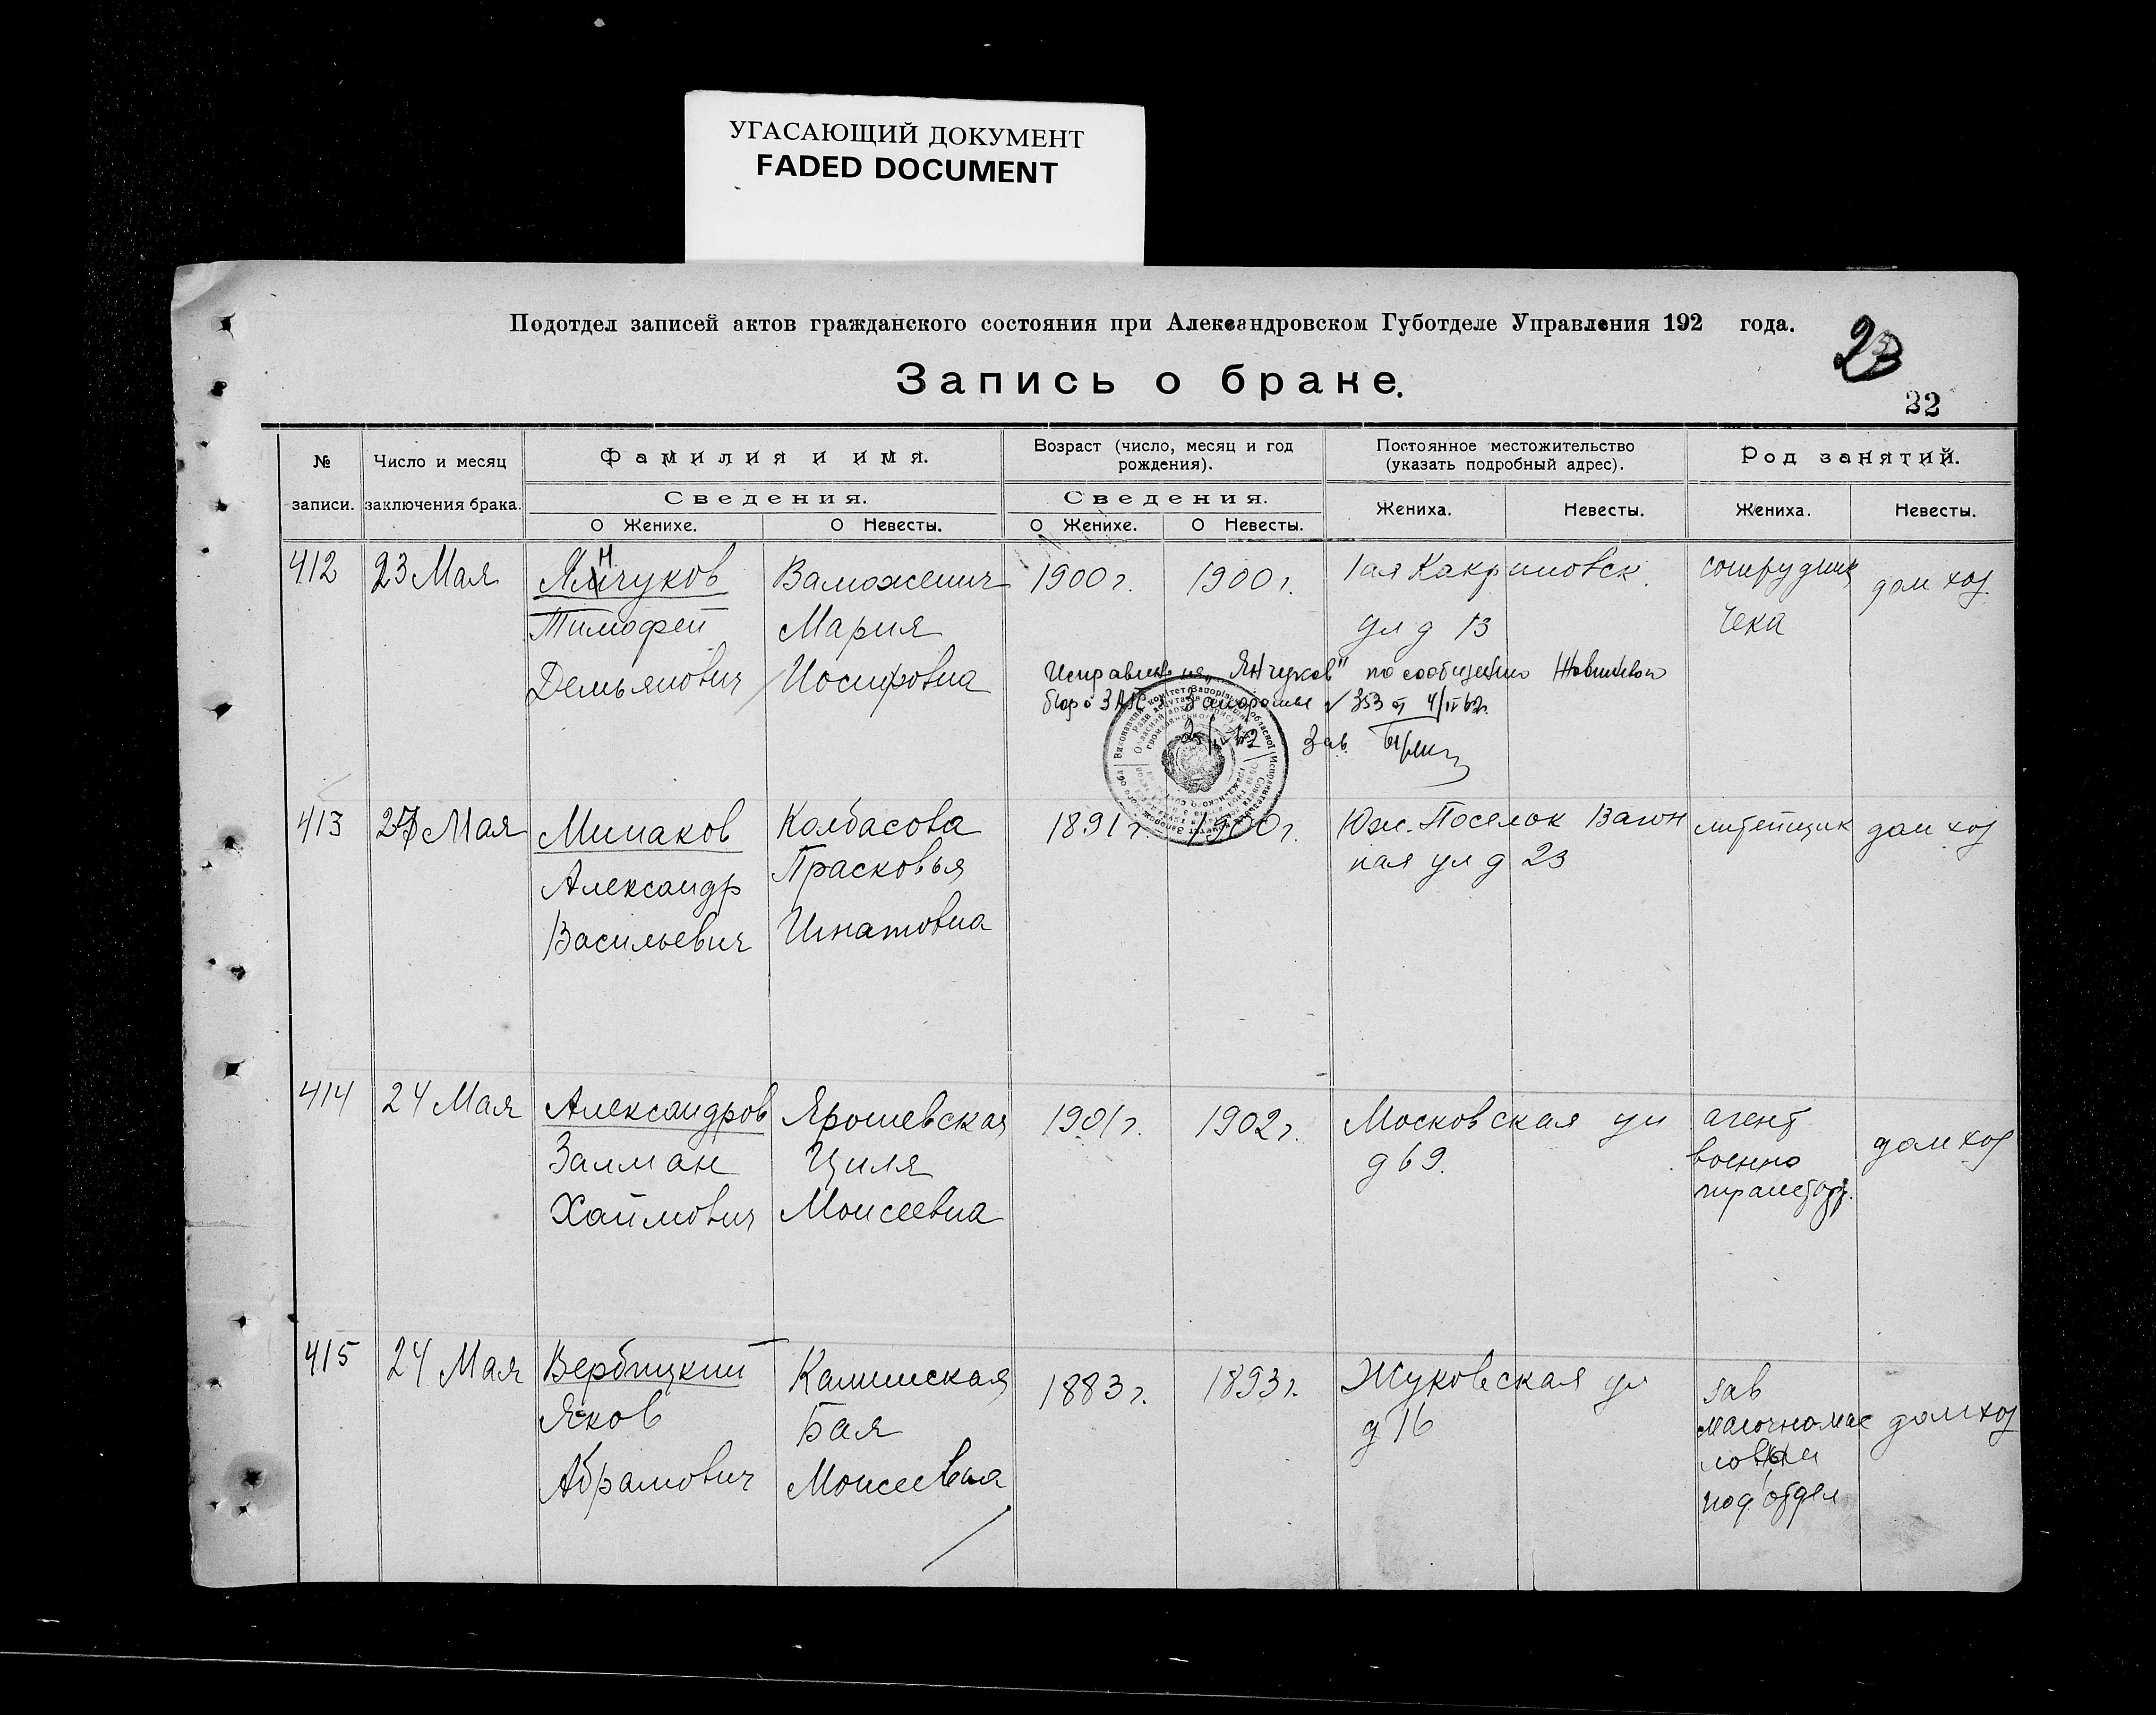 УГАСАЮЩИЙ ДОКУМЕНТ
FADED DOCUMENT
Подотдел записей актов гражданского состояния при Александровском Губотделе Управления 192 года.
23
Запись о браке.
32
№ записи.
Число и месяц заключения брака.
Фамилия и имя.
Сведения.
О Женихе.
О Невесты.
Возраст (число, месяц и год рождения).
Сведения.
О Женихе.
О Невесты.
Постоянное местожительство (указать подробный адрес).
Жениха.
Невесты.
Род занятий.
Жениха.
Невесты.
412 23 Мая Янчуков 1900 г. 1900 г. 1ая сотрудник дом хоз.
Тимофей Мария ул д 13 Чека
Демьянович Иосифовна
Исправлен на "Янчуков" по сообщению
бюро ЗАГС г. Запорожье № 353 от 4/IV 62г.
Зав.
413 27 Мая Минаков Колбасова 1891 г. 1900 г. Юж. Поселок Вагон литейщик дом хоз
Александр Прасковья ная ул д 23
Васильевич Игнатовна
414 24 Мая Александров Ярошевская 1901 г. 1902 г. Московская ул агент дом хоз
Залман Циля д 69. военно
Хаймович Моисеевна транспорт.
415 24 Мая Вербицкий Каминская 1883 г. 1893 г. Жуковская ул зав дом хоз
Яков Бая д 16 молочномас
Абрамович Моисеевна
под отдел